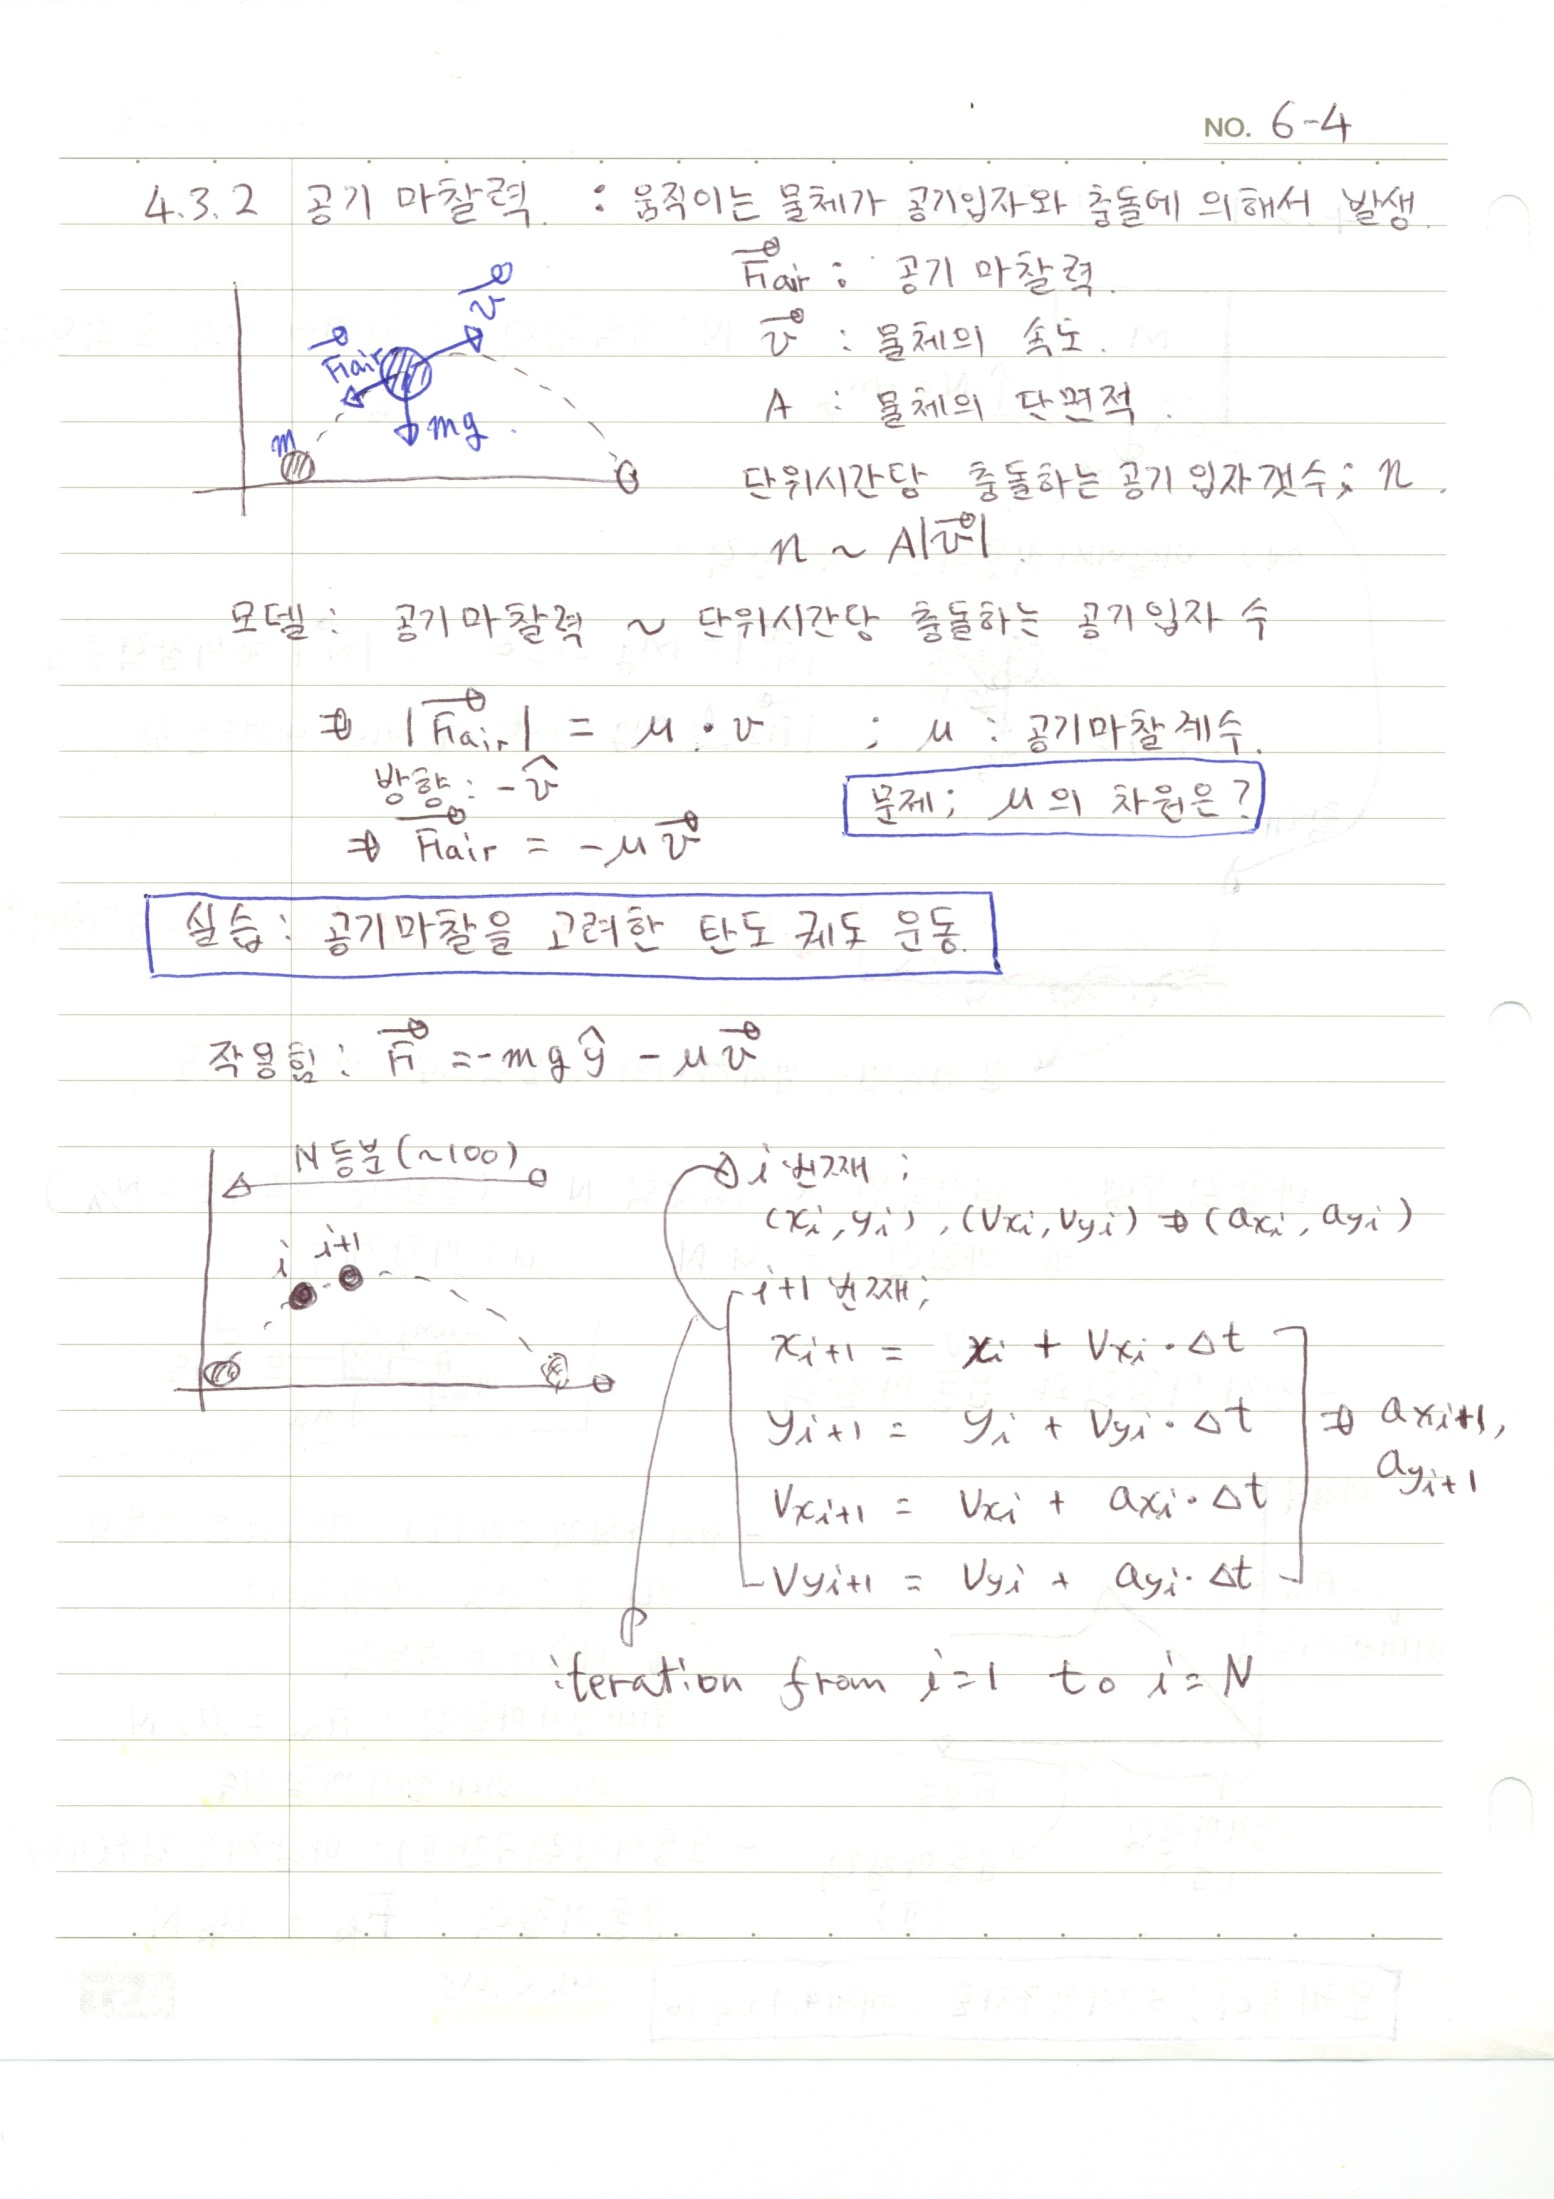 NO. 6-4
4.3.2 공기 마찰력. : 움직이는 물체가 공기입자와 충돌에 의해서 발생.
F⃗air : 공기 마찰력.
v⃗ : 물체의 속도.
A : 물체의 단면적.
단위시간당 충돌하는 공기 입자 갯수; n.
n ~ A|v⃗|.
v⃗
F⃗air
m
mg.
모델: 공기마찰력 ~ 단위시간당 충돌하는 공기입자 수
⇒ |F⃗air| = μ·v ; μ : 공기마찰계수.
방향: -v̂
문제; μ의 차원은?
⇒ F⃗air = -μv⃗
실습: 공기마찰을 고려한 탄도 궤도 운동.
작용힘: F⃗ = -mgŷ - μv⃗
N등분(~100)
i
i+1
i번째;
(xi, yi), (Vxi, Vyi) ⇒ (axi, ayi)
i+1 번째;
xi+1 = xi + Vxi·Δt
yi+1 = yi + Vyi·Δt
⇒ axi+1,
ayi+1
Vxi+1 = Vxi + axi·Δt
Vyi+1 = Vyi + ayi·Δt
iteration from i=1 to i=N